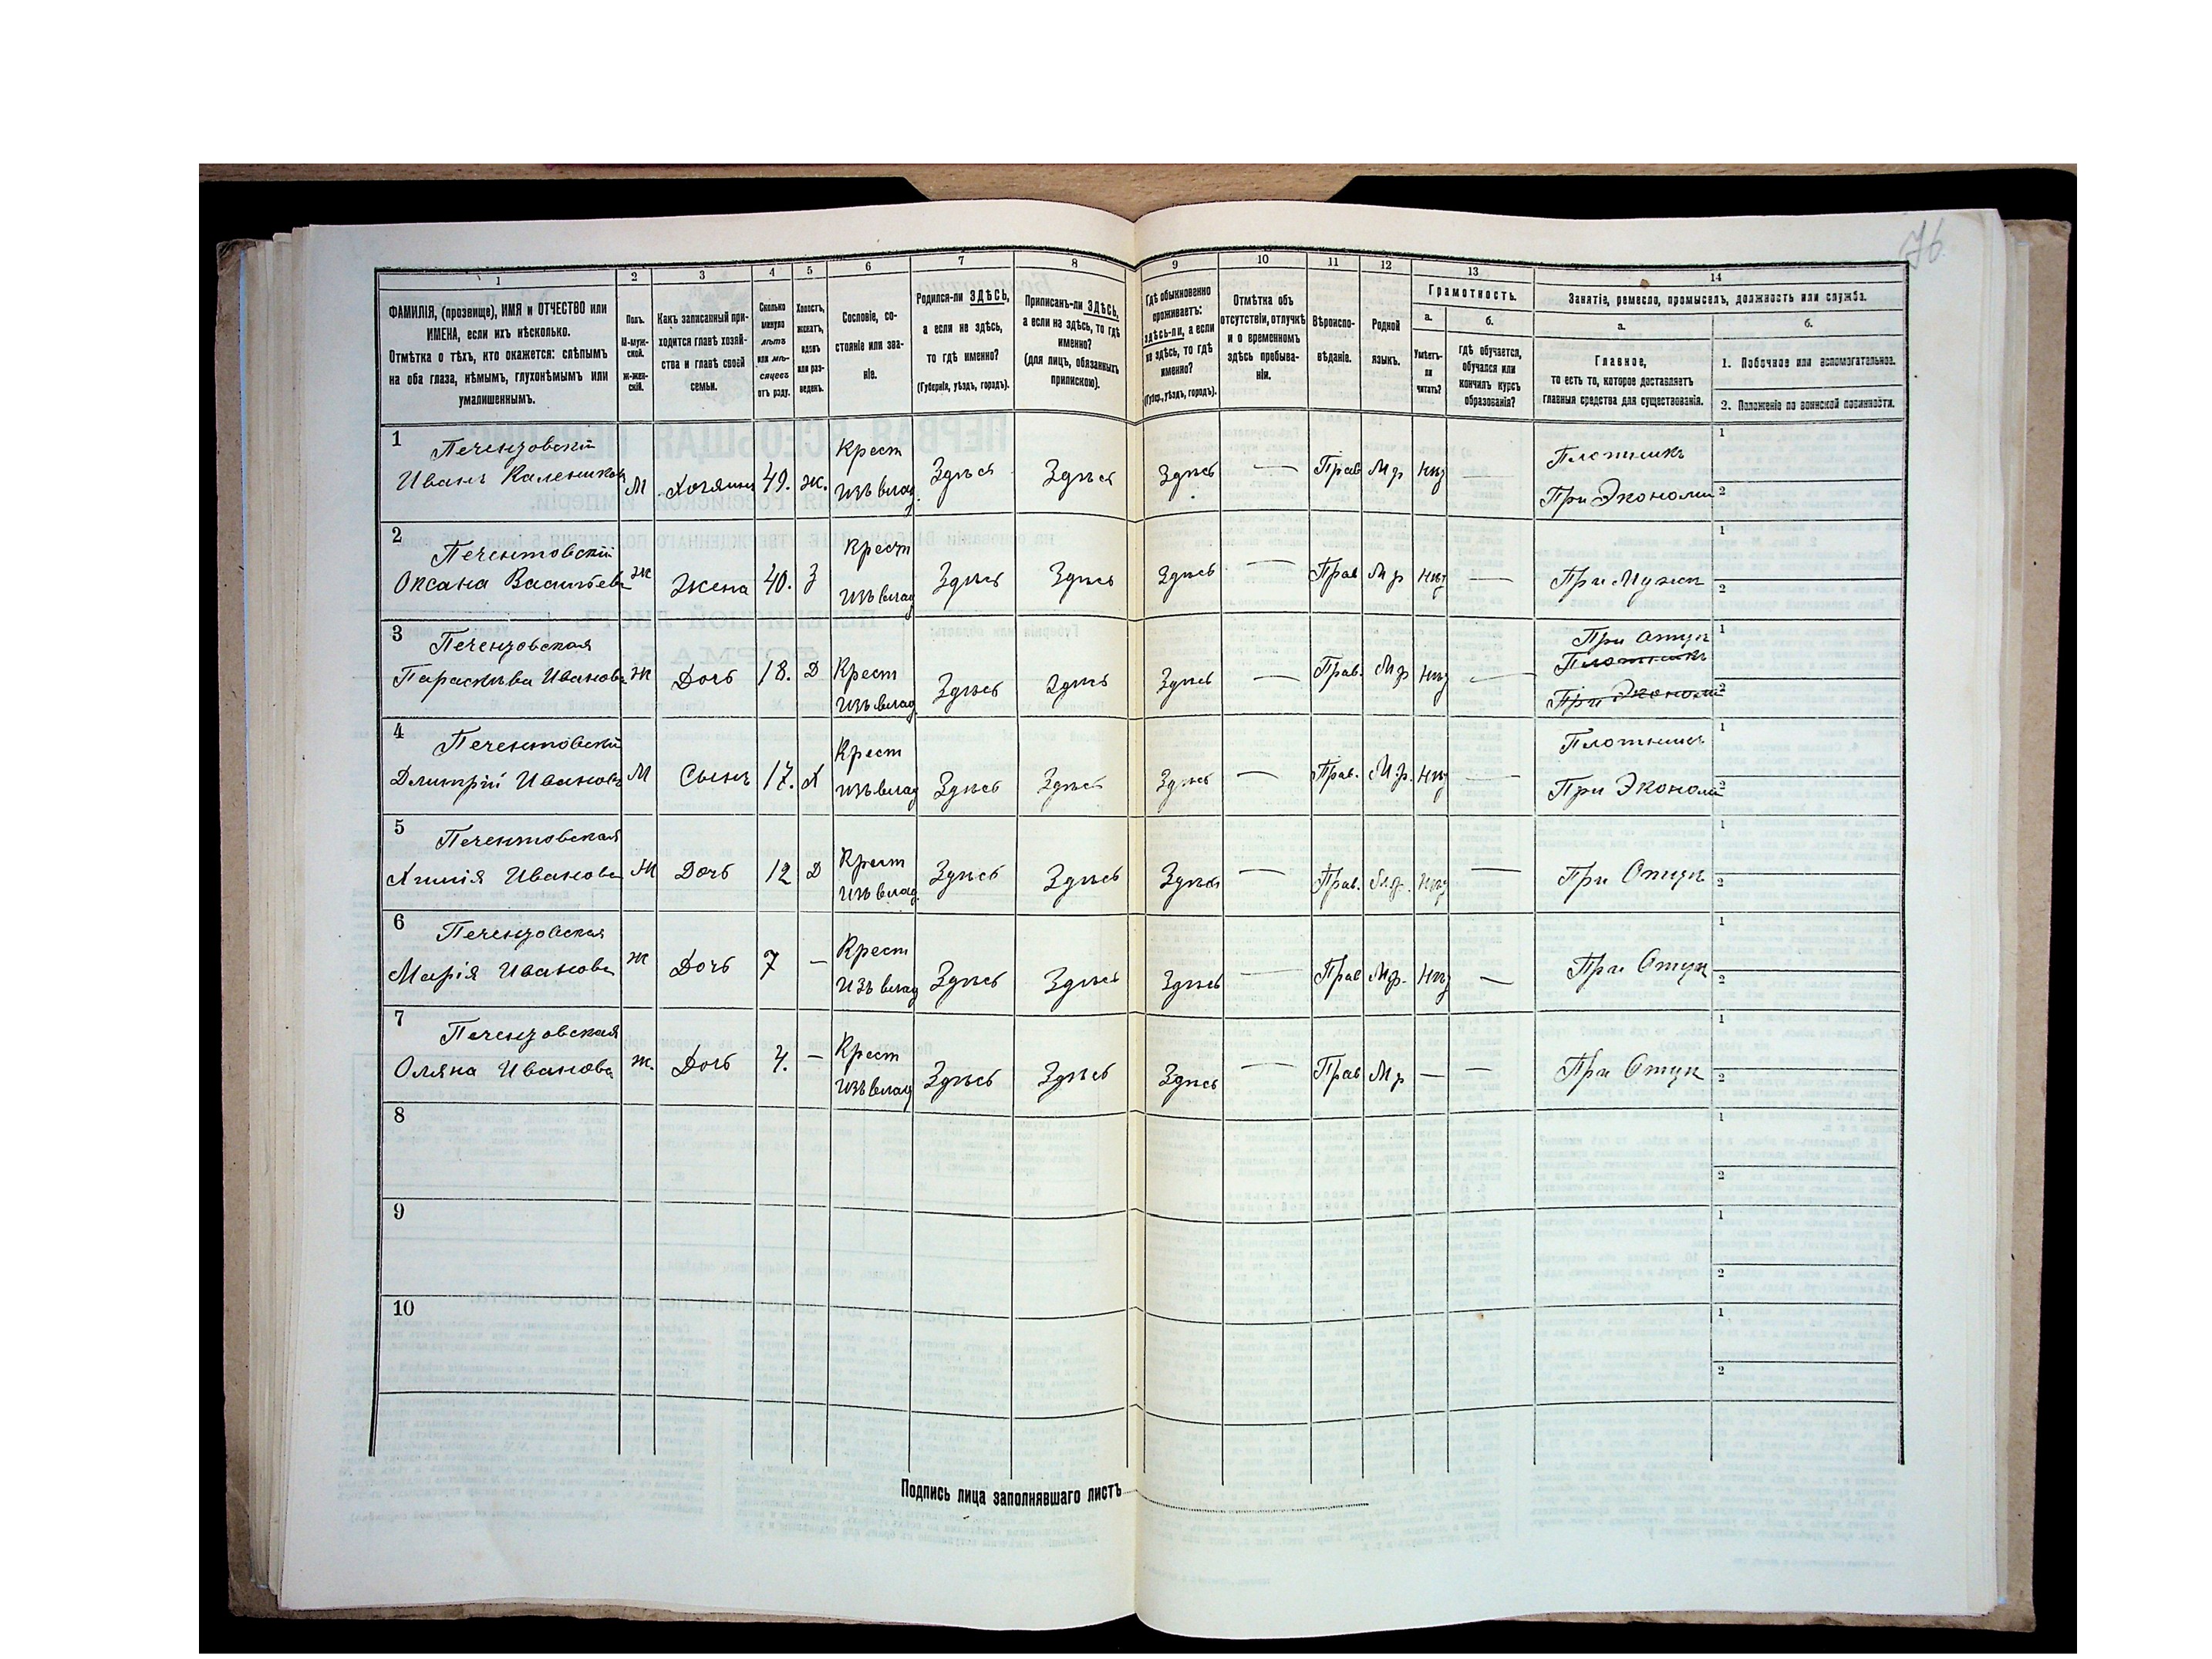 76
1 2 3 4 5 6 7 8 9 10 11 12 13 14
ФАМИЛІЯ, (прозвище), ИМЯ и ОТЧЕСТВО или
ИМЕНА, если ихъ нѣсколько.
Отмѣтка о тѣхъ, кто окажется: слѣпымъ
на оба глаза, нѣмымъ, глухонѣмымъ или
умалишеннымъ.
Полъ.
М-муж-
ской.
ж-жен-
скій.
Какъ записанный при-
ходится главѣ хозяй-
ства и главѣ своей
семьи.
Сколько
минуло
лѣтъ
или мѣ-
сяцевъ
отъ роду.
Холостъ,
женатъ,
вдовъ
или раз-
веденъ.
Сословіе, со-
стояніе или зва-
ніе.
Родился-ли ЗДѢСЬ,
а если не здѣсь,
то гдѣ именно?
(Губернія, уѣздъ, городъ).
Приписанъ-ли ЗДѢСЬ,
а если на здѣсь, то гдѣ
именно?
(для лицъ, обязанныхъ
припискою).
Гдѣ обыкновенно
проживаетъ:
здѣсь-ли, а если
не здѣсь, то гдѣ
именно?
(Губер., уѣздъ, городъ).
Отмѣтка объ
отсутствіи, отлучкѣ
и о временномъ
здѣсь пребыва-
ніи.
Вѣроиспо-
вѣданіе.
Родной
языкъ.
Грамотность.
а.
Умѣетъ-
ли
читать?
б.
гдѣ обучается,
обучался или
кончилъ курсъ
образованія?
Занятіе, ремесло, промыселъ, должность или служба.
а.
Главное,
то есть то, которое доставляетъ
главныя средства для существованія.
б.
1. Побочное или вспомогательное.
2. Положеніе по воинской повинности.
1 Печенговскій Крест Плотникъ 1
Иванъ Калениковъ М Хозяинъ 49. ж. изъ влад. Здѣсь Здѣсь Здѣсь — Прав Мр нѣт — При Эконом 2
2 Печентовскій Крест 1
Оксана Васильева ж Жена 40. З изъ влад Здѣсь Здѣсь Здѣсь — Прав Мр нѣт — При Мужѣ 2
3 Печенговская При отцѣ 1
Плотникъ
Параскѣва Иванова ж Дочь 18. Д Крест изъ влад Здѣсь Здѣсь Здѣсь — Прав. Мр нѣт — При Эконом 2
4 Печентовскій Крест Плотникъ 1
Дмитрій Ивановъ М Сынъ 17. Х изъ влад Здѣсь Здѣсь Здѣсь — Прав. М.р. нѣт — При Эконом 2
5 Печентовская Крест 1
Иванова ж Дочь 12 Д изъ влад Здѣсь Здѣсь Здѣсь — Прав. Мр. нѣт — При Отцѣ 2
6 Печенговская Крест 1
Марія Иванова ж Дочь 7 — изъ влад Здѣсь Здѣсь Здѣсь — Прав Мр. нѣт — При Отцѣ 2
7 Печенговская Крест 1
Оляна Иванова ж. Дочь 4. — изъ влад Здѣсь Здѣсь Здѣсь — Прав Мр — — При Отцѣ 2
8 1
2
9 1
2
10 1
2
Подпись лица заполнявшаго листъ